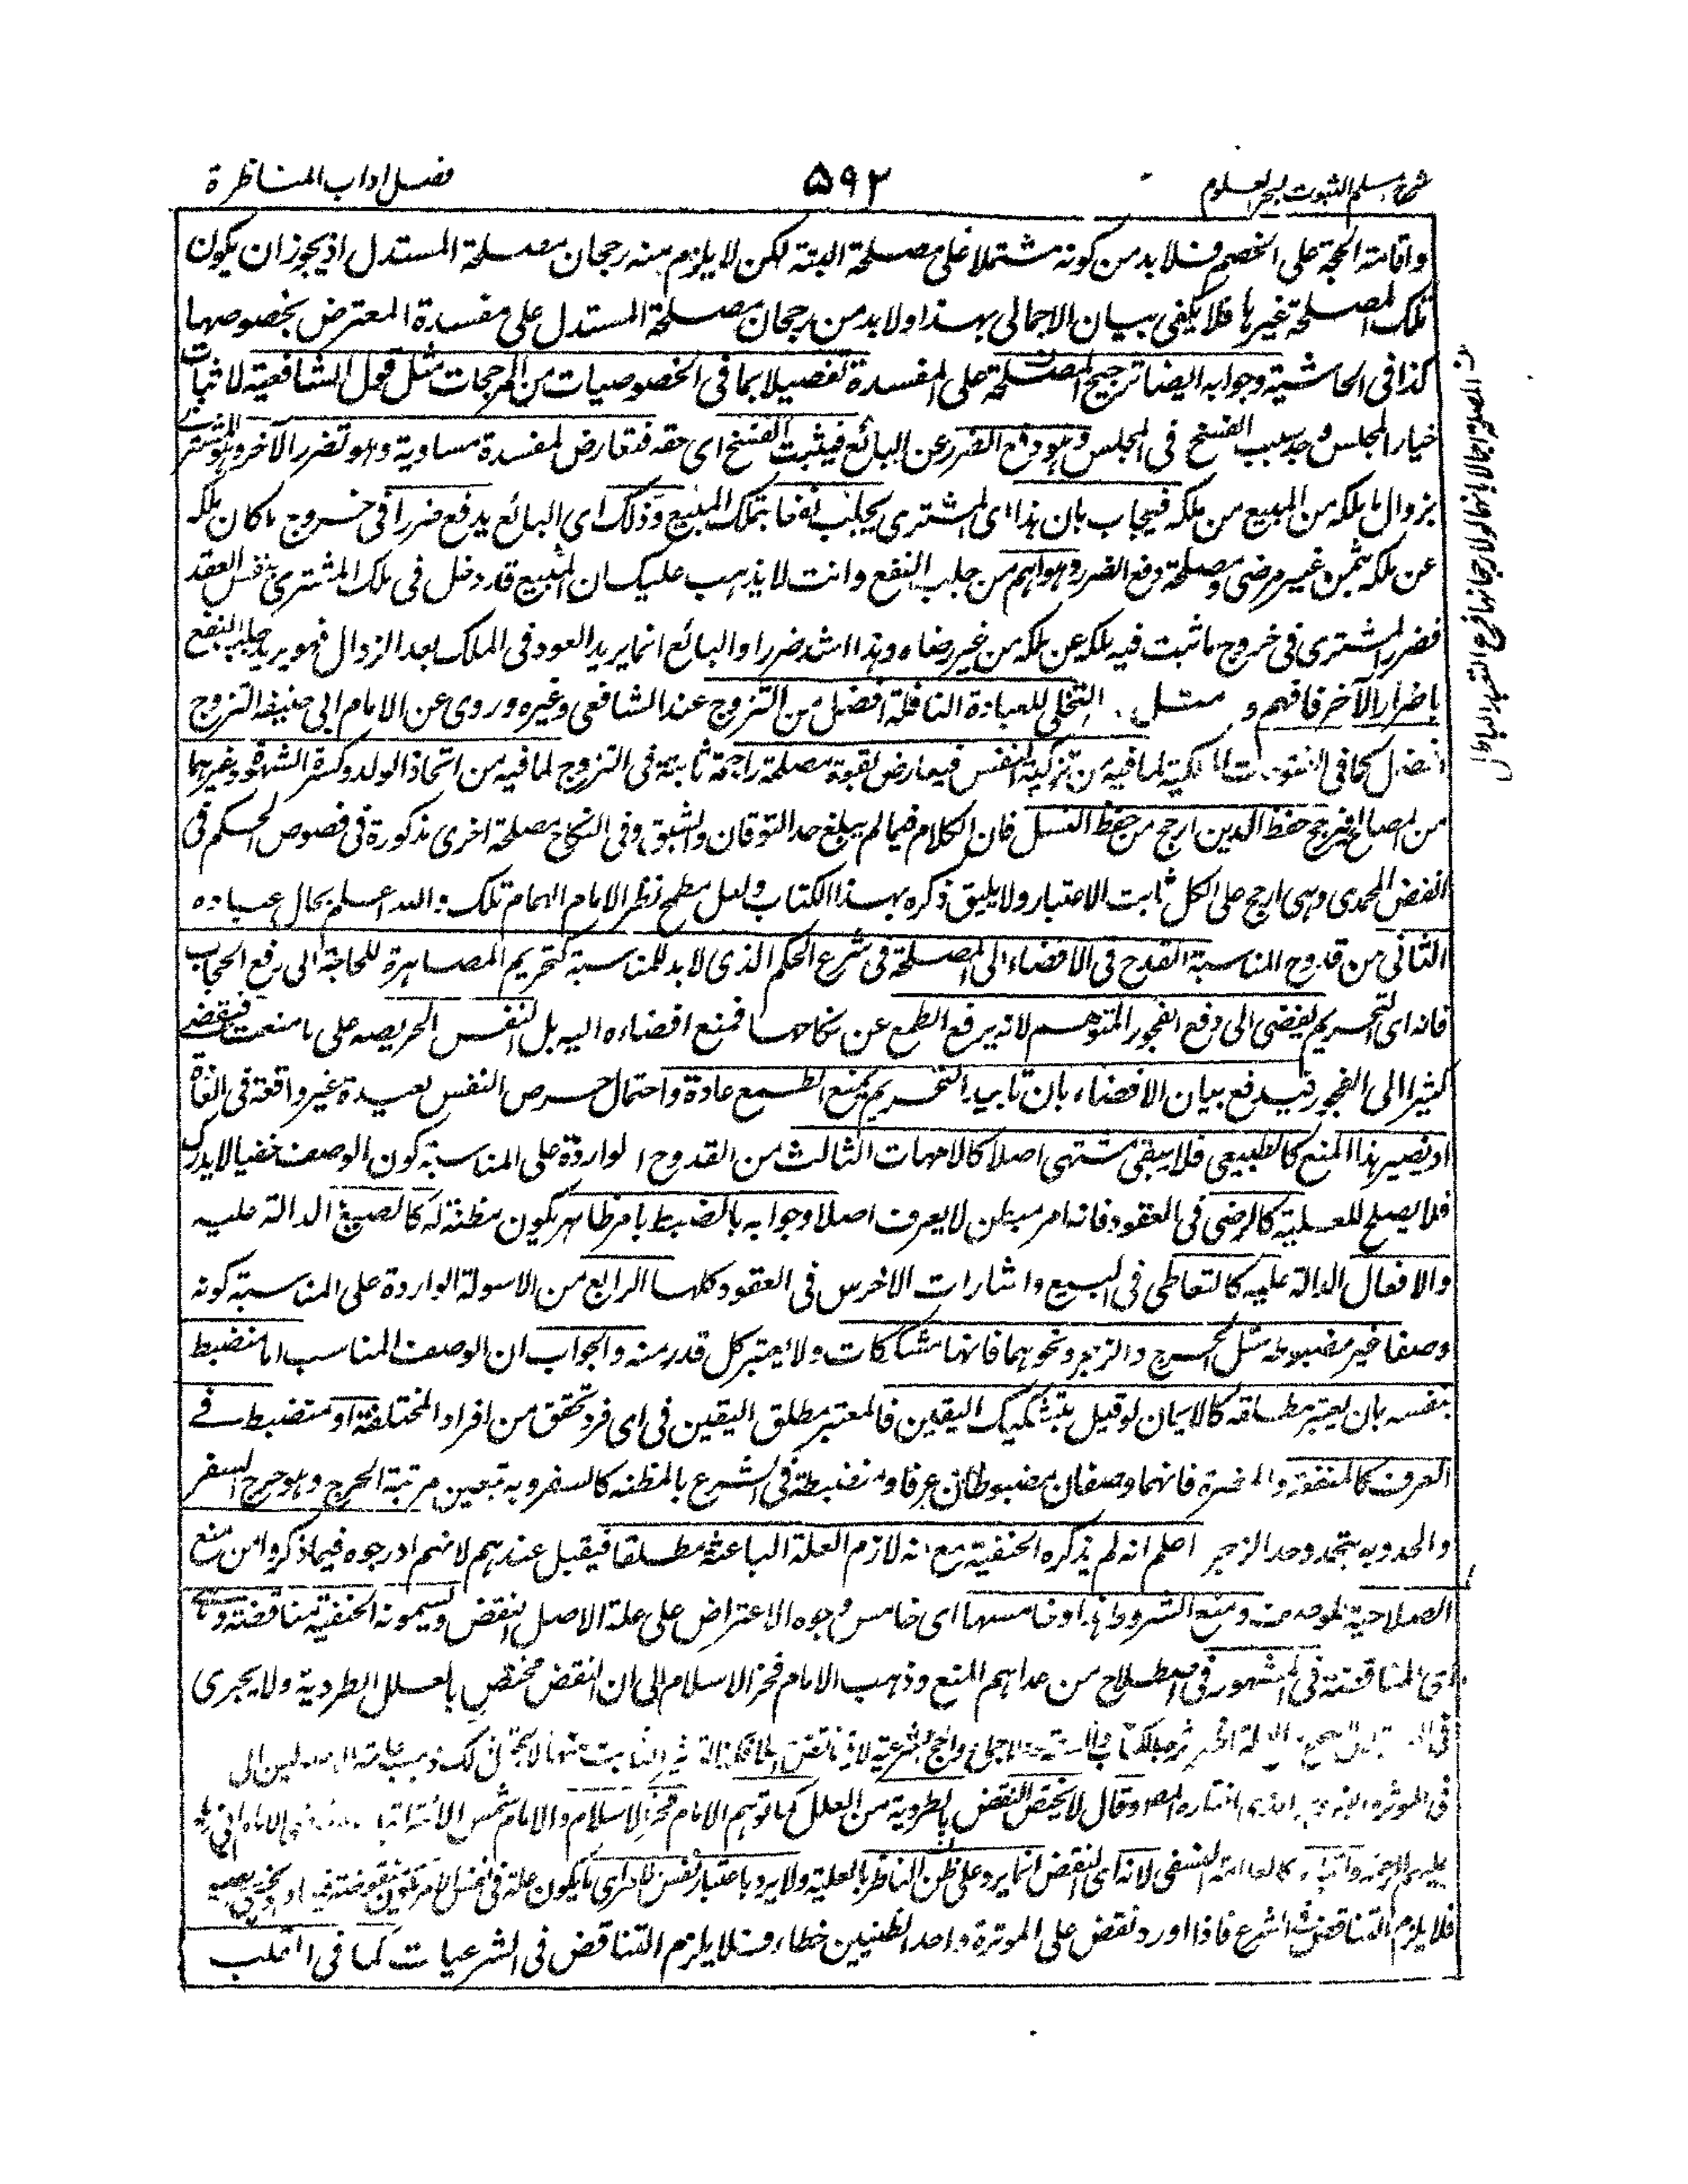 شرح مسلم الثبوت لبحر العلوم
۵۹۲
فصل اداب المناظرة
واقامة الحجة على الخصم فلا بد من كونه مشتملا على مصلحة البتة لكن لا يلزم منه رجحان مصلحة المستدل اذ يجوز ان يكون
تلك المصلحة غيرها فلا يكفى ببيان الاجمالى بهذا ولا بد من رجحان مصلحة المستدل على مفسدة المعترض بخصوصها
كذا فى الحاشية وجوابه ايضا ترجيح المصلحة على المفسدة تفصيلا بما فى الخصوصيات من المرجحات مثل قول الشافعية لاثبات
خيار المجلس وجد سبب الفسخ فى المجلس وهو دفع الضرر عن البائع فيثبت الفسخ اى حقه فتعارض لمفسدة مساوية وهو تضرر الآخر وهو المشترى
بزوال ما يملكه من المبيع من ملكه فيجاب بان هذا اى المشترى يجلب نفعا بتملك المبيع وذلك اى البائع يدفع ضررا فى خروج ما كان ملكه
عن ملكه بثمن غير مرضى ومصلحة دفع الضرر وهو اهم من جلب النفع وانت لا يذهب عليك ان المبيع قد دخل فى ملك المشترى بنفس العقد
فضرر المشترى فى خروج ما ثبت فيه ملكه عن ملكه من غير رضاه وهذا اشد ضررا والبائع انما يريد العود فى الملك بعد الزوال فهو يريد جلب النفع
باضرار الآخر فافهم و مثل التخلى للعبادة النافلة افضل من التزوج عند الشافعى وغيره وروى عن الامام ابى حنيفة التزوج
افضل كما فى لما فيه من تزكية النفس فيعارض لقوة مصلحة راجحة ثابتة فى التزوج لما فيه من اتخاذ الولد وكسر الشهوة وغيرهما
من المصالح فيرجح حفظ الدين ارجح من حفظ النسل فان الكلام فيما لم يبلغ حد التوقان والشبق وفى النكاح مصلحة اخرى مذكورة فى فصوص الحكم فى
الفص المحمدى وهى ارجح على الكل ثابت الاعتبار ولا يليق ذكره بهذا الكتاب ولعل مطمح نظر الامام الهمام تلك والله اعلم بحال عباده
الثانى من قدوح المناسبة القدح فى الافضاء الى المصلحة فى شرع الحكم الذى لا بد للمناسبة كتحريم المصاهرة للحاجة الى رفع الحجاب
فانه اى التحريم يفضى الى دفع الفجور المتوهم لانه يرفع الطمع عن نكاحها فمنع افضاءه اليه بل النفس الحريصه على ما منعت فيفضى
كثيرا الى الفجور فيدفع ببيان الافضاء بان تابيد التحريم يمنع الطمع عادة واحتمال حرص النفس بعيدة غير واقعة فى
او يصير هذا المنع كالطبيعى فلا يبقى مشتهى اصلا كالامهات الثالث من القدوح الواردة على المناسبة كون الوصف خفيا لا يدرك
فلا يصلح للعلية كالرضى فى العقود فانه امر مبطن لا يعرف اصلا وجوابه بالضبط بامر ظاهر يكون مظنة له كالصيغ الدالة عليه
والافعال الدالة عليه كالتعاطى فى البيع واشارات الاخرس فى العقود كلها الرابع من الاسولة الواردة على المناسبة كونه
وصفا غير مضبوط مثل الحرج والزجر ونحوهما فانها مشككات ولا يعتبر كل قدر منه والجواب ان الوصف المناسب اما منضبط
بنفسه بان يعتبر مطلقه كالايمان لو قيل بتشكيك اليقين فالمعتبر مطلق اليقين فى اى فرد تحقق من افراد المختلفة او منضبط فے
العرف كالمنفعة والمضرة فانهما وصفان مضبوطان عرفا و منضبطة فى الشرع بالمظنه كالسفر وبه تتعين مرتبة الحرج وهو حرج السفر
والحد وبه يتحدد وحد الزجر اعلم انه لم يذكره الحنفية مع انه لازم العلة الباعثة مطلقا فيقبل عندهم لانهم ادرجوه فيما ذكروا من منع
الصلاحية للوصف ومنع الشروط هذا وخامسها اى خامس وجوه الاعتراض على علة الاصل النقض ويسميونه الحنفية مناقضة
المناقضة فى المشهور فى اصطلاح من عداهم المنع وذهب الامام فخر الاسلام الى ان النقض مختص بالعلل الطردية ولا يجرى
فى الموثرة الذى اختاره المص وقال لا يختص النقض بالطردية من العلل كما توهم الامام فخر الاسلام والامام شمس الائمة
كالعلامة النسفى لانه اى النقض انما يرد على ظن الناظر بالعلية ولا يرد باعتبار نفس الامر اى ما يكون علة فى نفس الامر
فلا يلزم التناقض فى الشرع فاذا اورد نقض على الموثرة واحد الظنيين خطاء فلا يلزم التناقض فى الشرعيات كما فى القلب